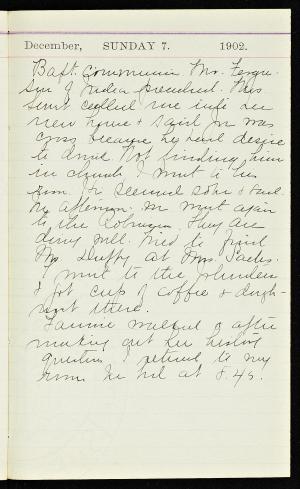 December, SUNDAY 7. 1902.
Bapt. Communion Mr. Fergu-
son of India preached. Miss
Scott called me into her
new house & said M was
cross because he had desire
to dine. Not finding him
in church I went to his
room. He seemed
In afternoon we went again
to the Robinsons. They are
doing well. Tried to find
Mr Duffy at Mrs.
I went to the
& got cup of coffee & dough-
nut there.
Fannie walked & after
making out her history
questions I retired to my
room. In bed at 8.45.